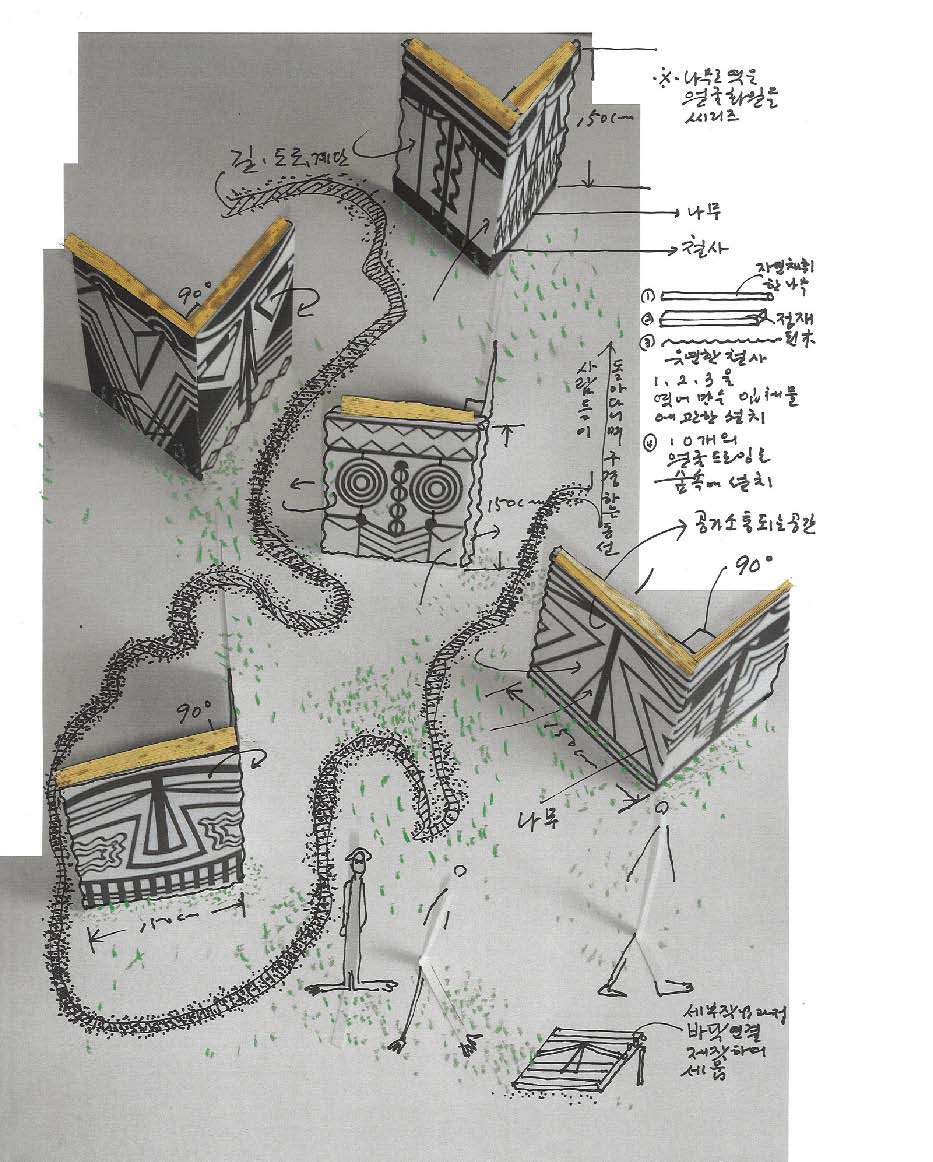 ※ 나무로 엮은
얼굴화일을
씨리즈
150cm
길. 도로, 계단
나무
철사
90°
자연채취
한 나무
①
② 정재
③ 원木
유연한 철사
1, 2, 3 을
엮어 만든 입체물
에 관한 설치
④ 10개의
얼굴 드로잉으로
숲속에 설치
사람들이
돌아다니며 구경하는 동선
150cm
공기소통되는공간
90°
90°
150cm
나무
150cm
세부작업과정
바닥연결
제작하여
세움